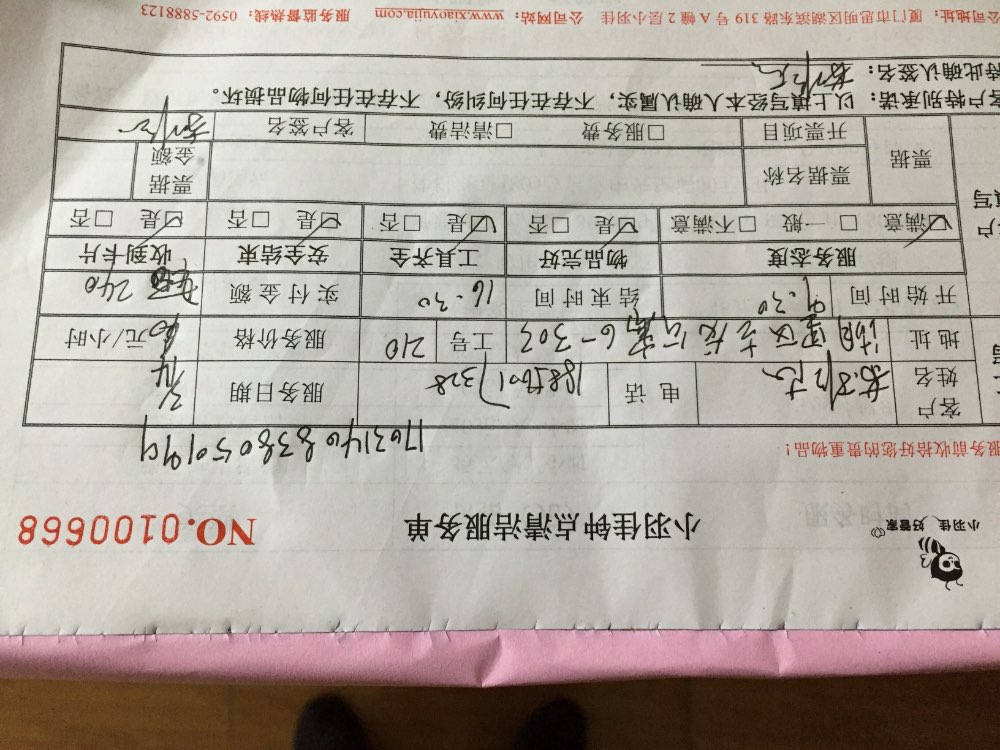 小羽佳 好管家
小羽佳钟点清洁服务单 NO.0100668
服务前收拾好您的贵重物品!
1703140838050199
客户姓名 电话 服务日期 3/14
地址 303 工号 210 服务价格 60 元/小时
开始时间 9.30 结束时间 16.30 实付金额 240
服务态度 物品完好 工具齐全 安全结束 收到卡片
☑满意 □一般 □不满意 ☑是 □否 ☑是 □否 ☑是 □否 ☑是 □否
票据 票据名称 票据金额
开票项目 □服务费 □清洁费 客户签名
客户特别承诺:以上填写经本人确认属实,不存在任何纠纷,不存在任何物品损坏。
特此确认签名:
公司地址:厦门市思明区湖滨东路 319 号 A 幢 2 层小羽佳 公司网站:www.xiaoyujia.com 服务监督热线:0592-5888123